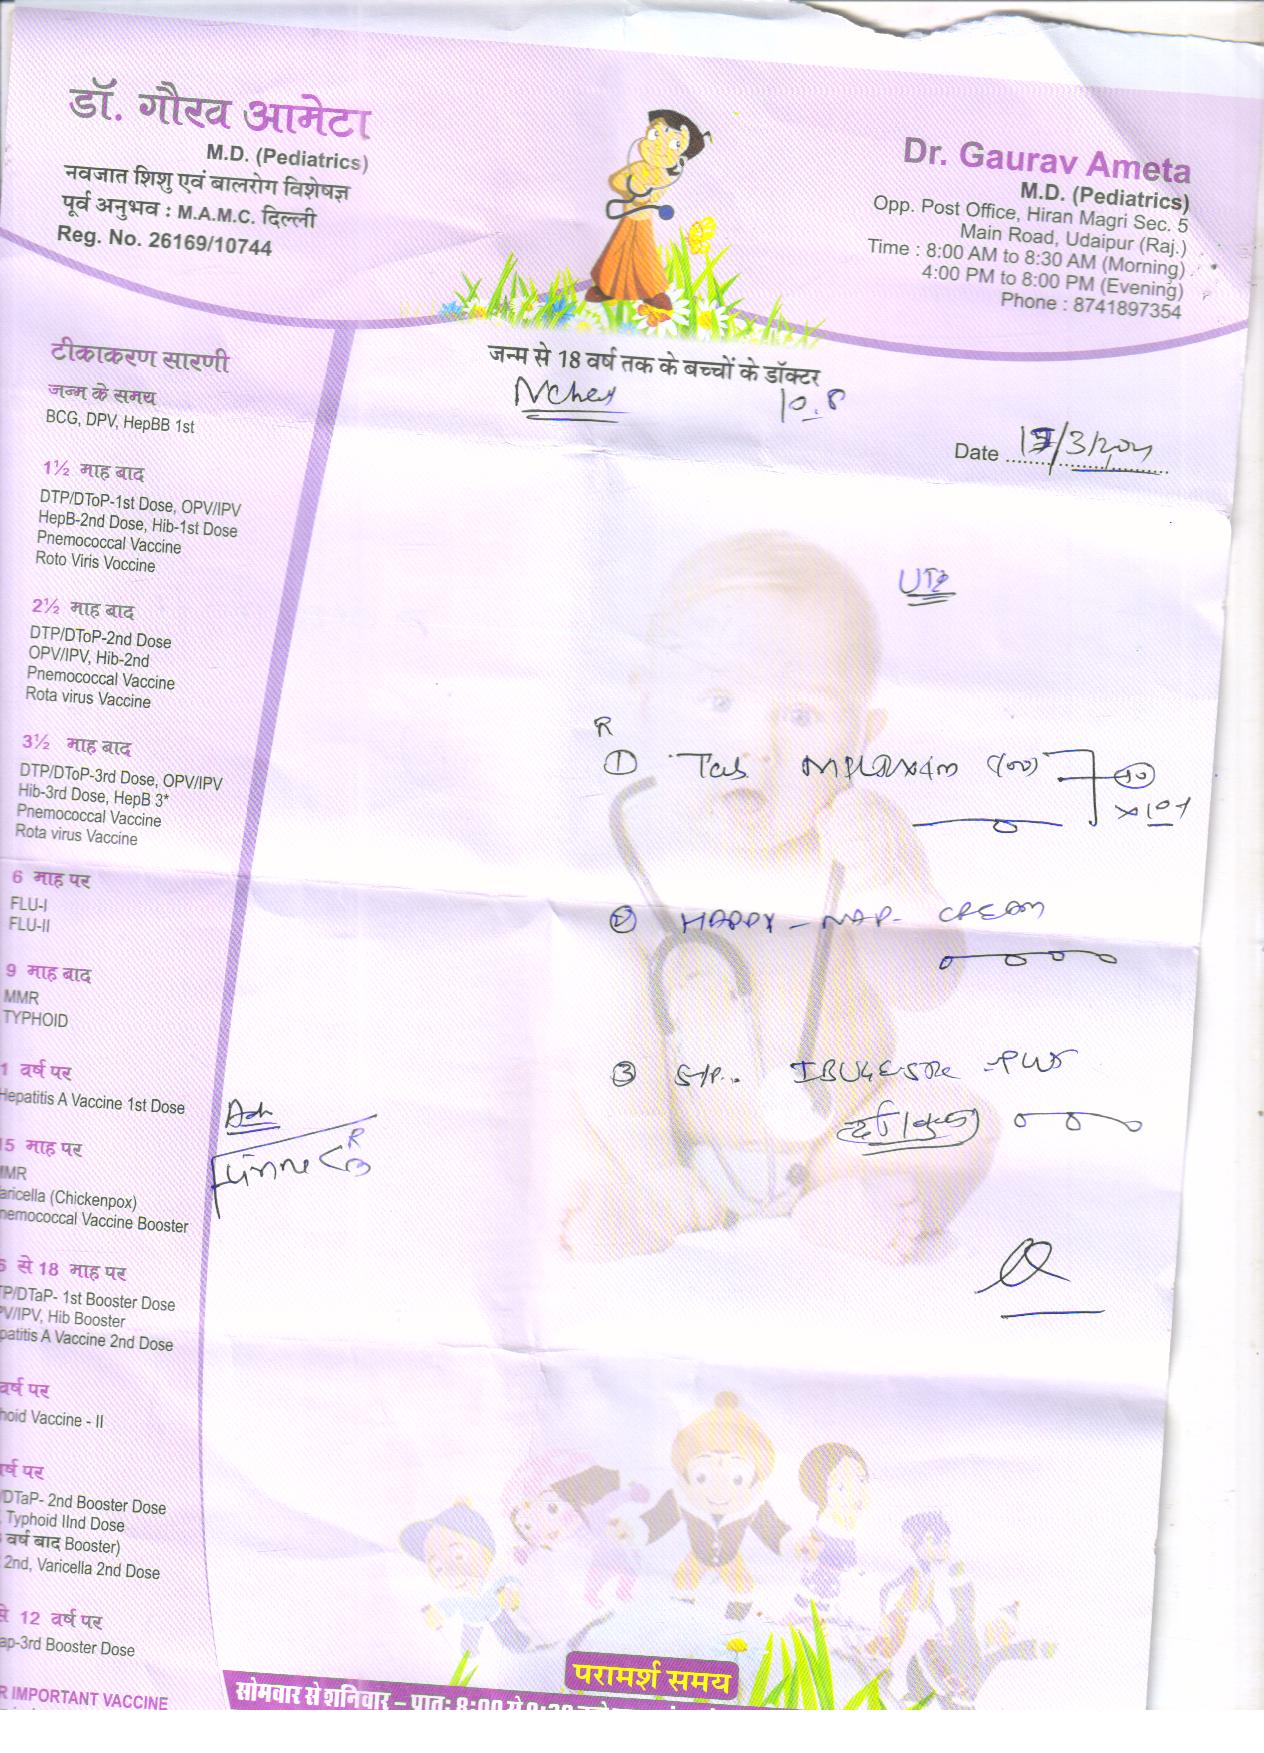 डॉ. गौरव आमेटा
M.D. (Pediatrics)
नवजात शिशु एवं बालरोग विशेषज्ञ
पूर्व अनुभव : M.A.M.C. दिल्ली
Reg. No. 26169/10744
Dr. Gaurav Ameta
M.D. (Pediatrics)
Opp. Post Office, Hiran Magri Sec. 5
Main Road, Udaipur (Raj.)
Time : 8:00 AM to 8:30 AM (Morning)
4:00 PM to 8:00 PM (Evening)
Phone : 8741897354
जन्म से 18 वर्ष तक के बच्चों के डॉक्टर
10.8
Date
टीकाकरण सारणी
जन्म के समय
BCG, DPV, HepBB 1st
1½ माह बाद
DTP/DToP-1st Dose, OPV/IPV
HepB-2nd Dose, Hib-1st Dose
Pnemococcal Vaccine
Roto Viris Voccine
2½ माह बाद
DTP/DToP-2nd Dose
OPV/IPV, Hib-2nd
Pnemococcal Vaccine
Rota virus Vaccine
3½ माह बाद
DTP/DToP-3rd Dose, OPV/IPV
Hib-3rd Dose, HepB 3*
Pnemococcal Vaccine
Rota virus Vaccine
6 माह पर
FLU-I
FLU-II
9 माह बाद
MMR
TYPHOID
1 वर्ष पर
Hepatitis A Vaccine 1st Dose
15 माह पर
MMR
Varicella (Chickenpox)
Pnemococcal Vaccine Booster
6 से 18 माह पर
TP/DTaP- 1st Booster Dose
PV/IPV, Hib Booster
patitis A Vaccine 2nd Dose
वर्ष पर
hoid Vaccine - II
वर्ष पर
/DTaP- 2nd Booster Dose
Typhoid IInd Dose
वर्ष बाद Booster)
2nd, Varicella 2nd Dose
से 12 वर्ष पर
ap-3rd Booster Dose
R IMPORTANT VACCINE
R
① Tab (100)
② HAPPY - NAP - CREAM
③ Syp.
परामर्श समय
सोमवार से शनिवार – प्रातः 8:00 से